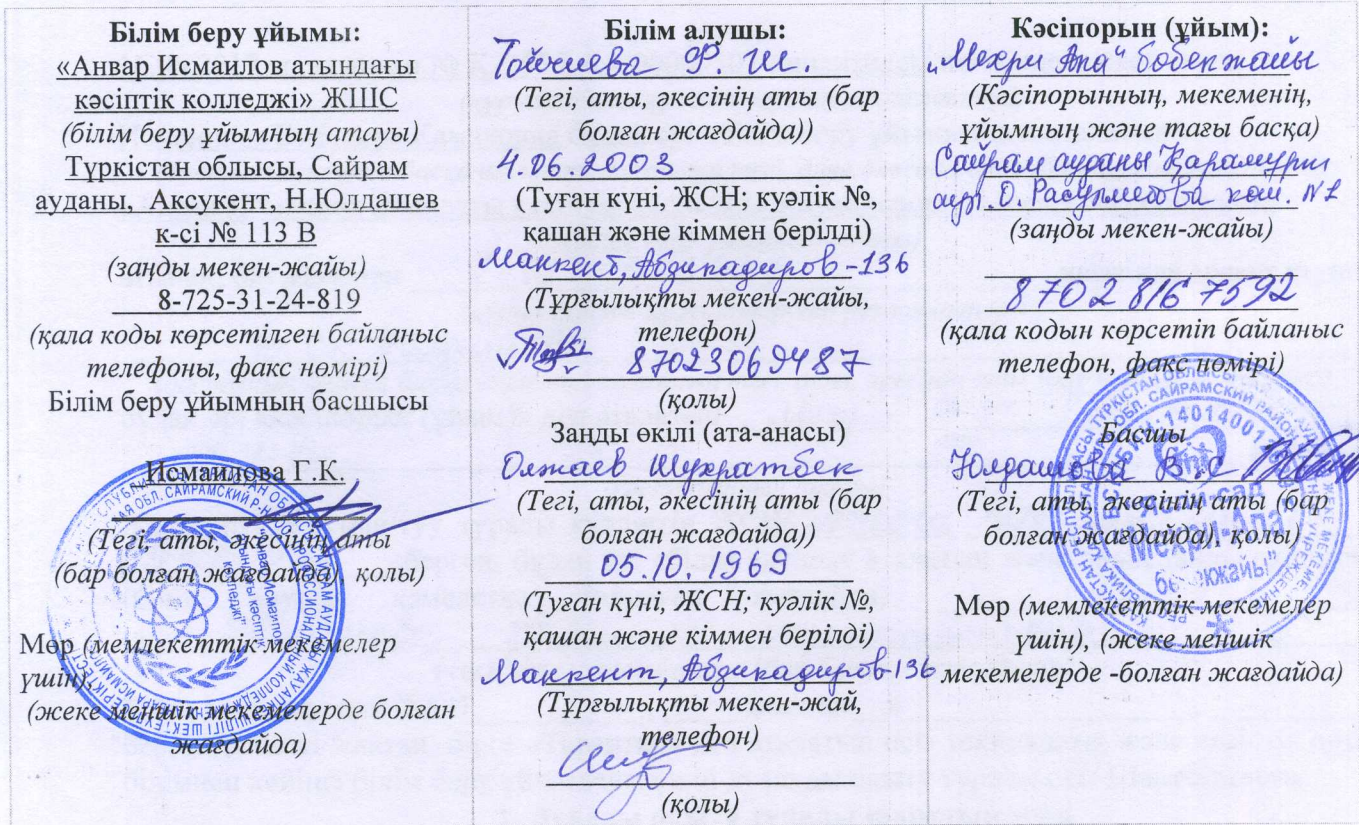 Білім беру ұйымы:
«Анвар Исмаилов атындағы
кәсіптік колледжі» ЖШС
(білім беру ұйымның атауы)
Түркістан облысы, Сайрам
ауданы, Аксукент, Н.Юлдашев
к-сі № 113 В
(заңды мекен-жайы)
8-725-31-24-819
(қала коды көрсетілген байланыс
телефоны, факс нөмірі)
Білім беру ұйымның басшысы
Исмаилова Г.К.
(Тегі, аты, әкесінің аты
(бар болған жағдайда), қолы)
Мөр (мемлекеттік мекемелер
үшін),
(жеке меншік мекемелерде болған
жағдайда)
Білім алушы:
Тойчиева Ф. Ш.
(Тегі, аты, әкесінің аты (бар
болған жағдайда))
4.06.2003
(Туған күні, ЖСН; куәлік №,
қашан және кіммен берілді)
Манкент, Абдикадиров-136
(Тұрғылықты мекен-жайы,
телефон)
87023069487
(қолы)
Заңды өкілі (ата-анасы)
Олжаев Шухратбек
(Тегі, аты, әкесінің аты (бар
болған жағдайда))
05.10.1969
(Туған күні, ЖСН; куәлік №,
қашан және кіммен берілді)
Манкент, Абдикадиров 136
(Тұрғылықты мекен-жай,
телефон)
(қолы)
Кәсіпорын (ұйым):
„Мехри Апа" бөбекжайы
(Кәсіпорынның, мекеменің,
ұйымның және тағы басқа)
Сайрам ауданы Қарамурт
ауыл, О. Расулметова көш. №1
(заңды мекен-жайы)
8702 816 7592
(қала кодын көрсетіп байланыс
телефон, факс нөмірі)
Басшы
Юлдашова В.С
(Тегі, аты, әкесінің аты (бар
болған жағдайда), қолы)
ясли-сад
Мехри-Апа
бөбекжайы"
Мөр (мемлекеттік мекемелер
үшін), (жеке меншік
мекемелерде -болған жағдайда)